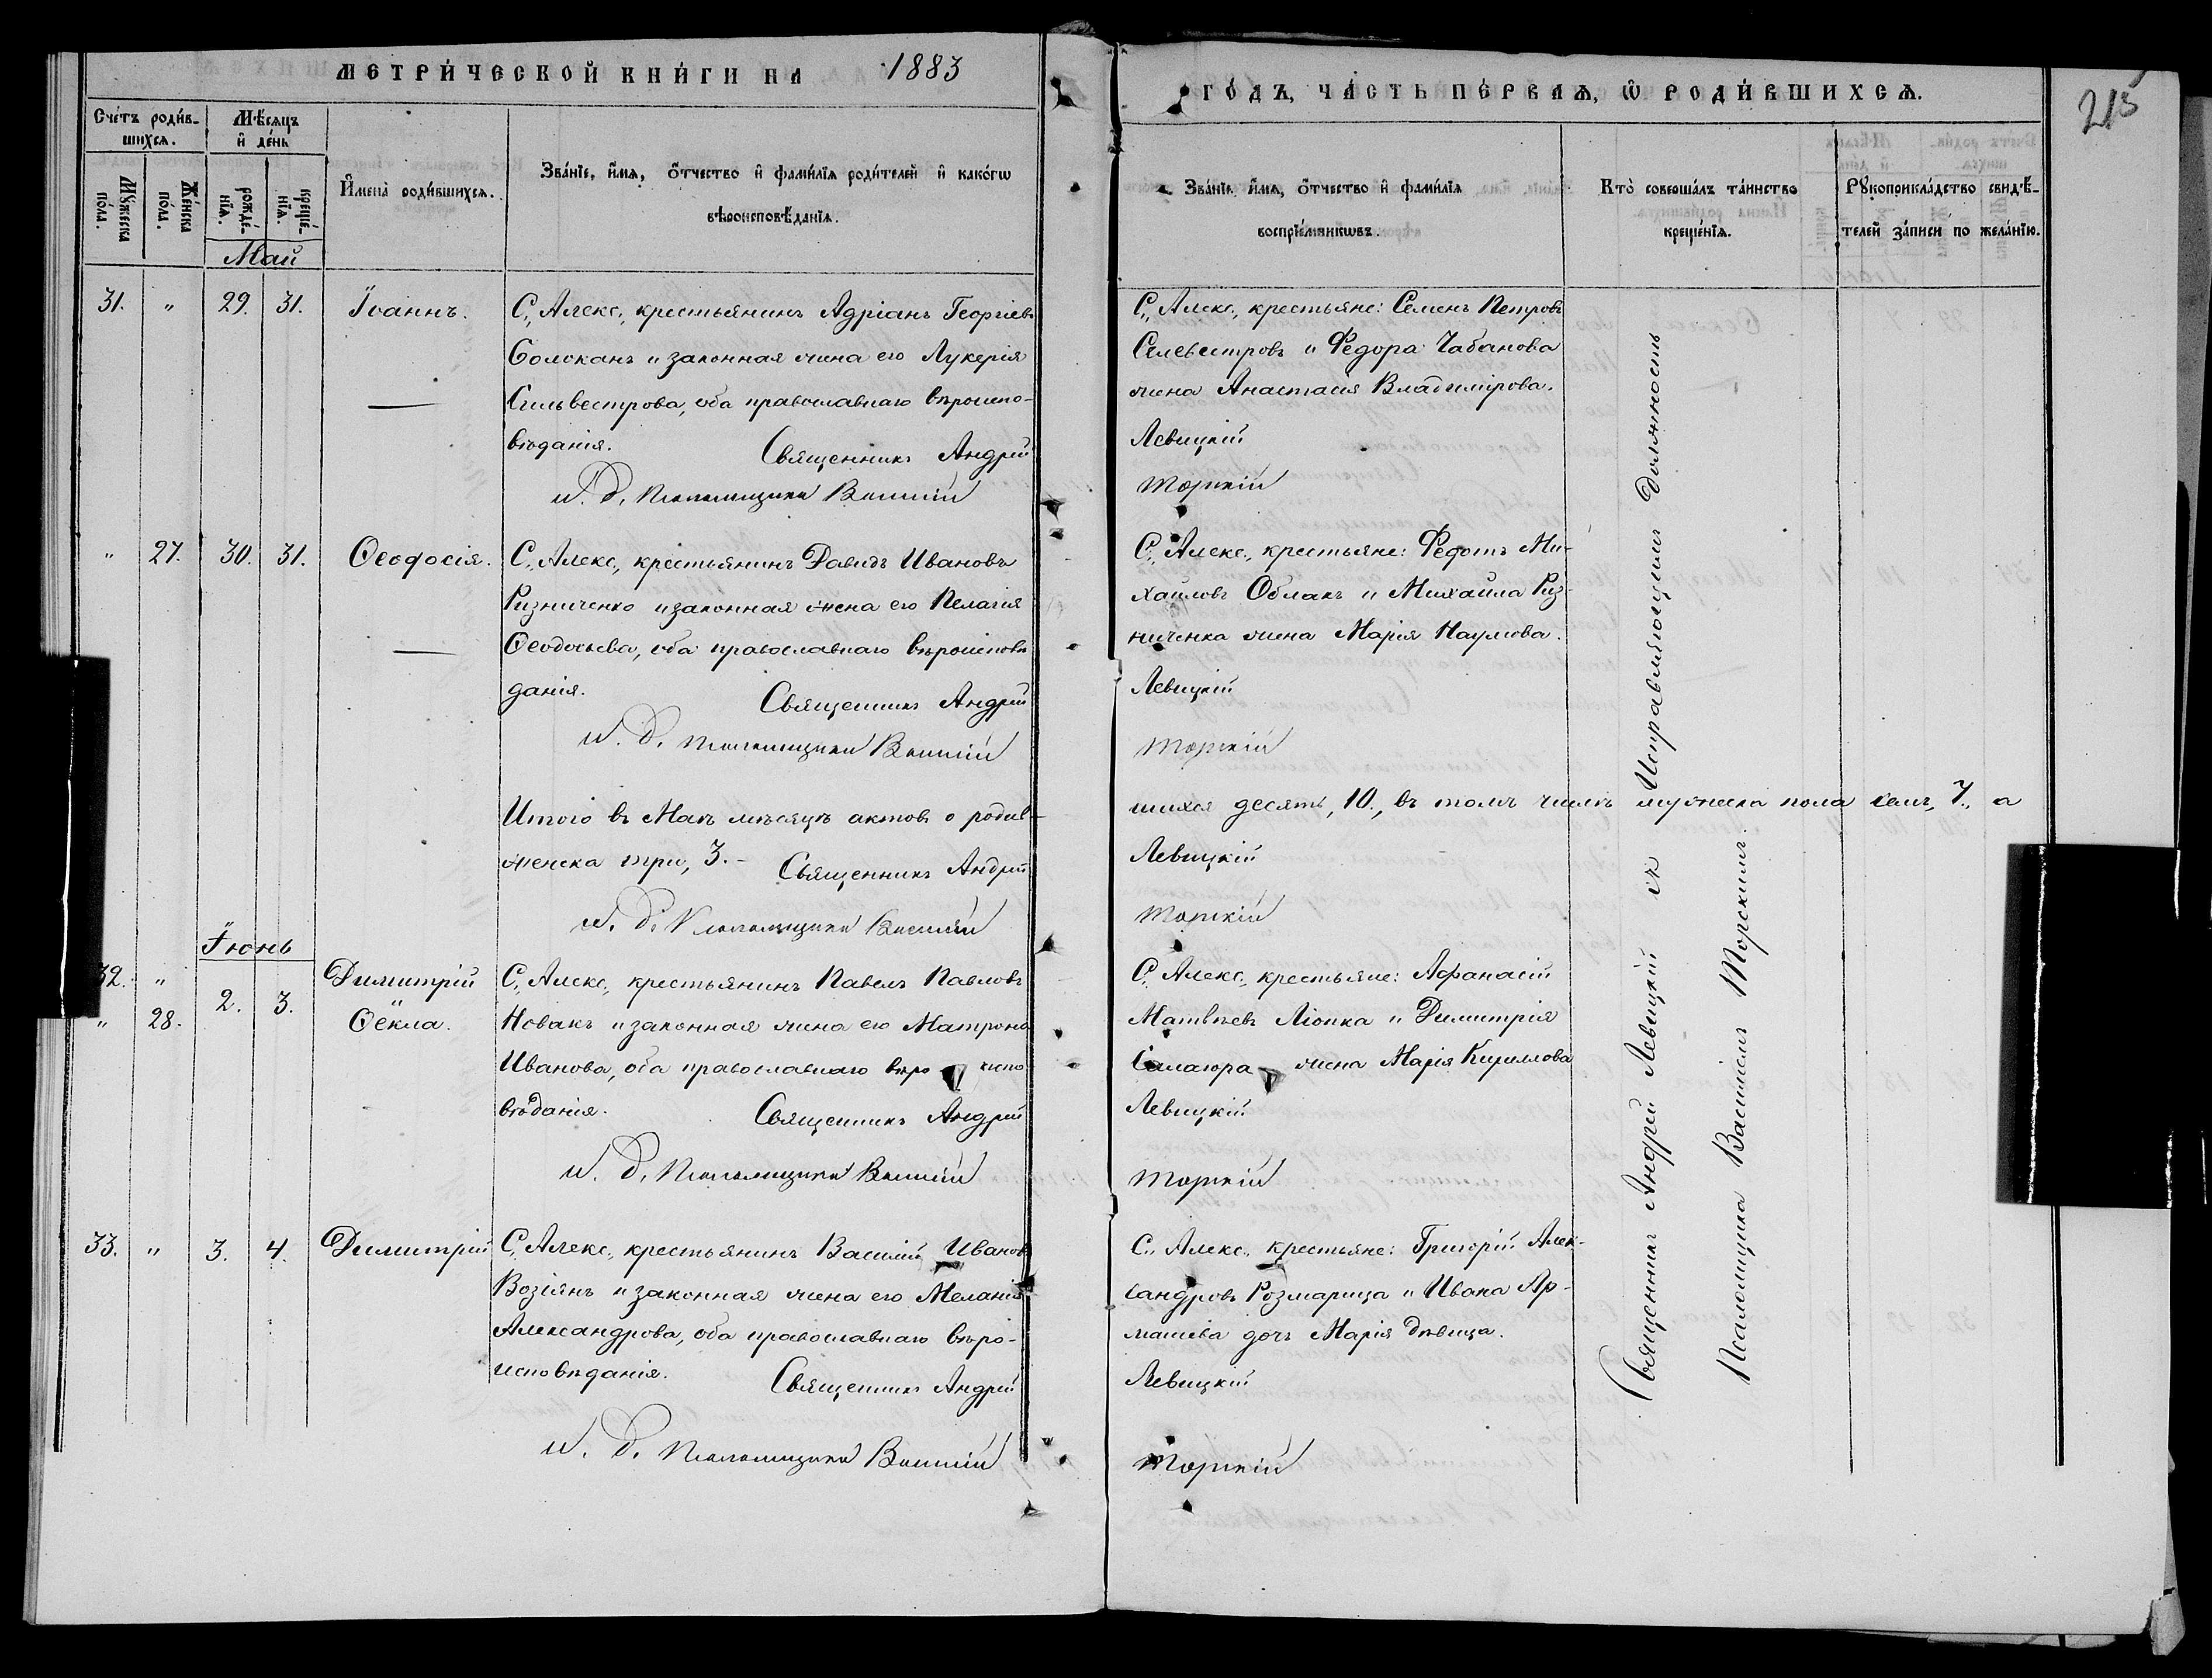 МЕТРИ́ЧЕСКОЙ КНИ́ГИ НА 1883
ГО́ДЪ, ЧА́СТЬ ПЕ́РВАЯ, Ѡ РОДИ́ВШИХСЯ.
215
Сче́тъ роди́в-
шихся.
Мѣ́сяцъ
и де́нь
Му́жеска по́ла.
Же́нска по́ла.
рожде́-нія.
креще́-нія.
Имена̀ роди́вшихся.
Зва́ніе, и́мя, о́тчество и фами́лія роди́телей и како́гѡ
вѣроисповѣ́данія.
Зва́ніе и́мя, о́тчество и фами́лія
воспріе́мникѡвъ.
Кто̀ соверша́лъ та́инство
креще́нія.
Рꙋкоприкла́дство свидѣ́-
телей за́писи по жела́нію.
Май
31. " 29. 31. Іоаннъ.
С. Алекс., крестьянинъ Адріанъ Георгіевъ
Солоканъ и законная жена его Лукерія
Сильвестрова, оба православнаго вѣроиспо-
вѣданія.
Священникъ Андрій
и. д. Псаломщика Василій
С. Алекс., крестьяне: Семенъ Петровъ
Селевестровъ и Ѳедора Чабанова
жена Анастасія Владимірова.
Левицкій
Торскій
" 27. 30. 31. Ѳеодосія.
С. Алекс., крестьянинъ Давидъ Ивановъ
Ризниченко и законная жена его Пелагія
Ѳеодосьева, оба православнаго вѣроисповѣ
данія.
Священникъ Андрій
и. д. Псаломщика Василій
С. Алекс., крестьяне: Федотъ Ми-
хаиловъ Облакъ и Михаила Риз-
ниченка жена Марія Наумова.
Левицкій
Торскій
Итого въ Маѣ мѣсяцѣ актовъ о родив-
шихся десять, 10., въ томъ числѣ мужеска пола семь, 7., а
женска три, 3.-
Священникъ Андрій
Левицкій
и. д. Псаломщика Василій
Торскій
Іюнь
32. " Димитрій
" 28. 2. 3. Ѳекла.
С. Алекс., крестьянинъ Павелъ Павловъ
Новакъ и законная жена его Матрона
Иванова, оба православнаго вѣро испо
вѣданія.
Священникъ Андрій
и. д. Псаломщика Василій
С. Алекс., крестьяне: Афанасій
Матвѣевъ Ліопка и Димитрія
Саламора жена Марія Кириллова
Левицкій
Торскій
33. " 3. 4. Димитрій
С. Алекс., крестьянинъ Василій Ивановъ
Возіянъ и законная жена его Меланія
Александрова, оба православнаго вѣро-
исповѣданія.
Священникъ Андрій
и. д. Псаломщика Василій
С. Алекс., крестьяне: Григорій Алек-
сандровъ Розмарица и Ивана Ар-
машева дочь Марія дѣвица.
Левицкій
Торскій
Священникъ Андрей Левицкій съ Исправляющимъ Должность
Псаломщика Василіемъ Торскимъ.